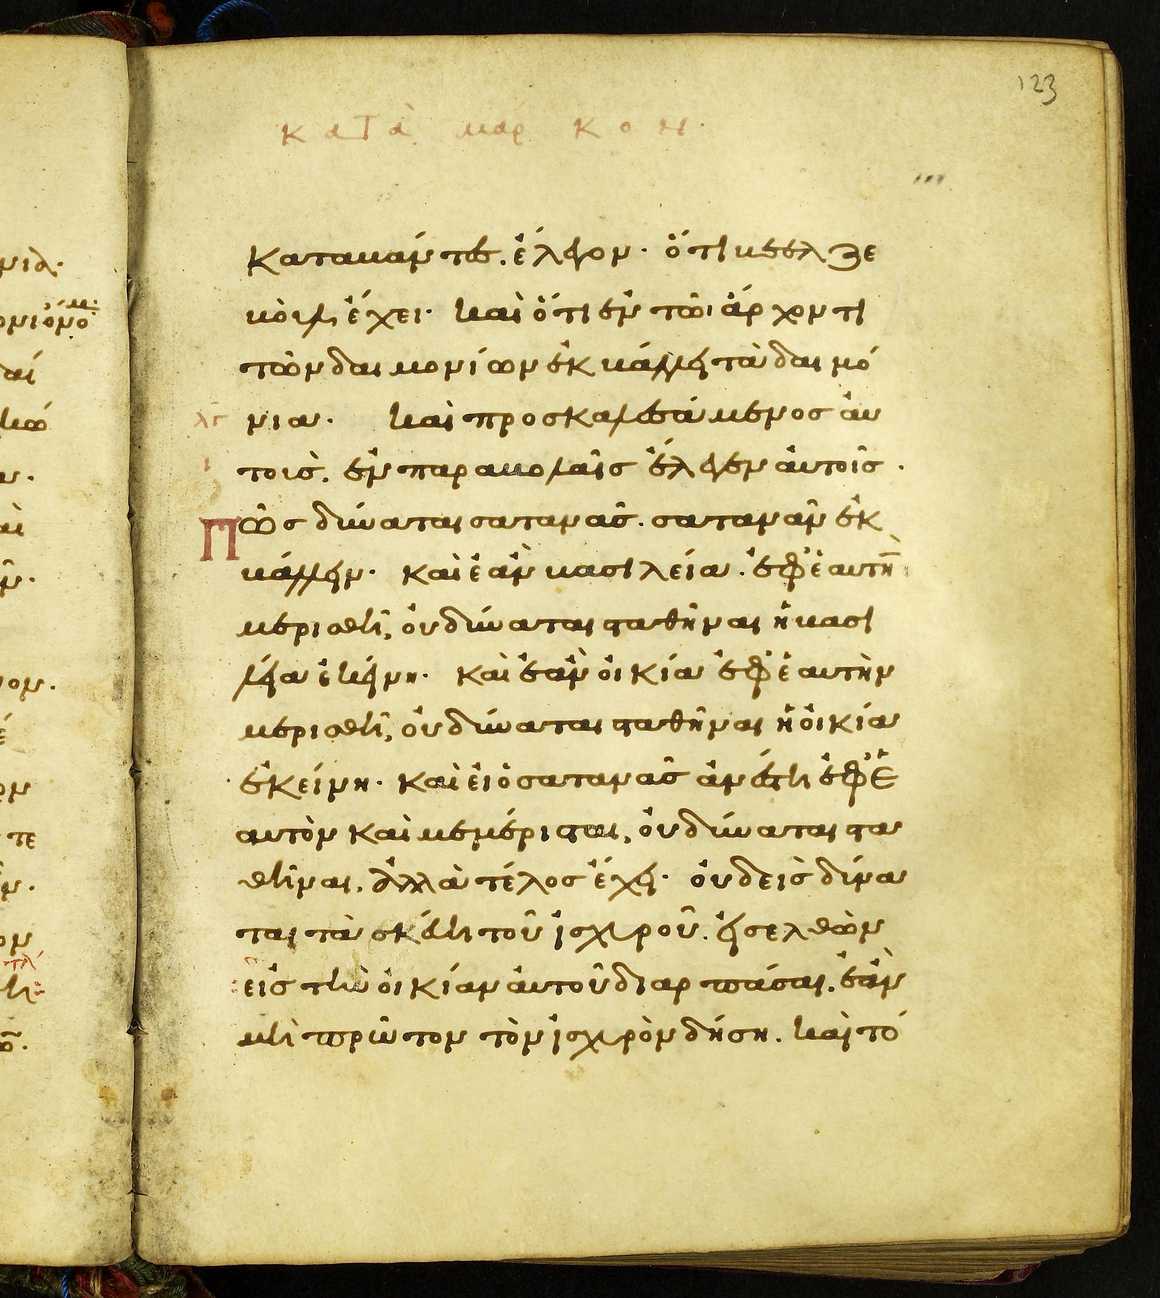 123
κατὰ μάρκον·
καταβάντες. ἔλεγον· ὅτι βεελζε
βοὺλ ἔχει· καὶ ὅτι ἐν τῶι ἄρχοντι
τῶν δαιμονίων ἐκβάλλει τὰ δαιμό
νια· καὶ προσκαλεσάμενος αὐ
τοὺσ. ἐν παραβολαῖσ ἔλεγεν αὐτοῖσ·
Πῶσ δύναται σατανᾶσ. σατανᾶν ἐκ
βάλλειν· καὶ ἐὰν βασιλεία· ἐφ' ἑαυτὴν
μερισθῆ, οὐ δύναται σταθῆναι ἡ βασι
λεία ἐκείνη· καὶ ἐὰν οἰκία ἐφ' ἑαυτὴν
μερισθῆ, οὐ δύναται σταθῆναι ἡ οἰκία
ἐκείνη· καὶ εἰ ὁ σατανᾶσ ἀνέστη ἐφ' ἑ
αυτὸν καὶ μεμέρισται, οὐ δύναται στα
θῆναι, ἀλλὰ τέλοσ ἔχει· οὐδεὶσ δύνα
ται τὰ σκεύη τοῦ ἰσχυροῦ. εἰσελθὼν
εἰσ τὴν οἰκίαν αὐτοῦ διαρπάσαι. ἐὰν
μὴ πρῶτον τὸν ἰσχυρὸν δήση. καὶ τό